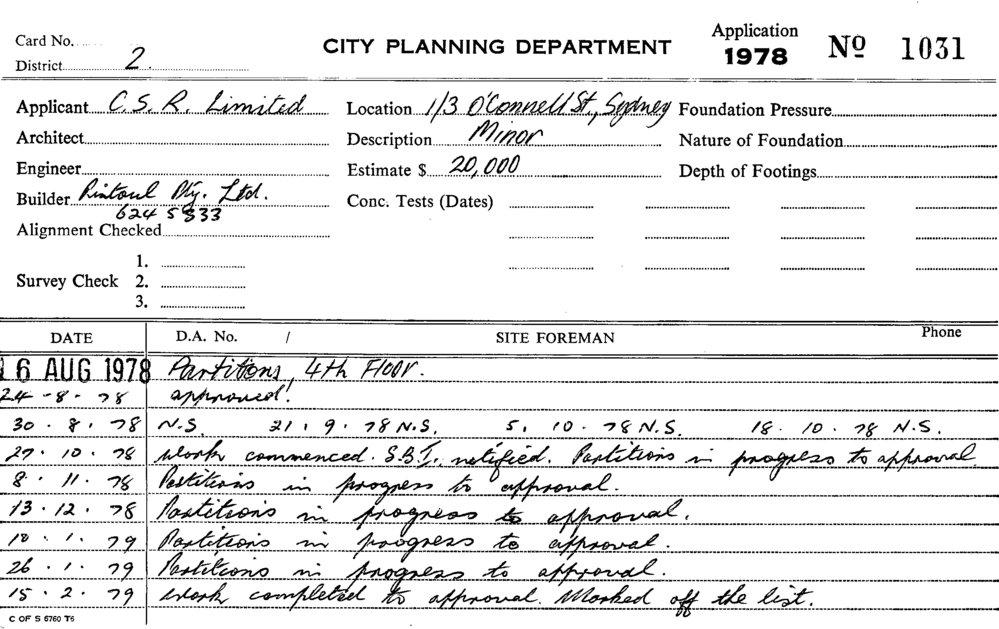 Card No.
District 2
CITY PLANNING DEPARTMENT
Application
1978 No 1031
Applicant C.S.R. Limited Location 1/3 O'Connell St., Sydney Foundation Pressure
Architect Description Minor Nature of Foundation
Engineer Estimate $ 20,000 Depth of Footings
Builder Rintoul Pty. Ltd. Conc. Tests (Dates)
624 5833
Alignment Checked
1.
Survey Check 2.
3.
DATE D.A. No. / SITE FOREMAN Phone
16 AUG 1978 Partitions, 4th Floor.
24-8-78 approved.
30.8.78 N.S. 21.9.78 N.S. 5.10.78 N.S. 18.10.78 N.S.
27.10.78 Work commenced. S.B.I. notified. Partitions in progress to approval.
8.11.78 Partitions in progress to approval.
13.12.78 Partitions in progress to approval.
10.1.79 Partitions in progress to approval.
26.1.79 Partitions in progress to approval.
15.2.79 Work completed to approval. Marked off the list.
C OF S 6760 T6